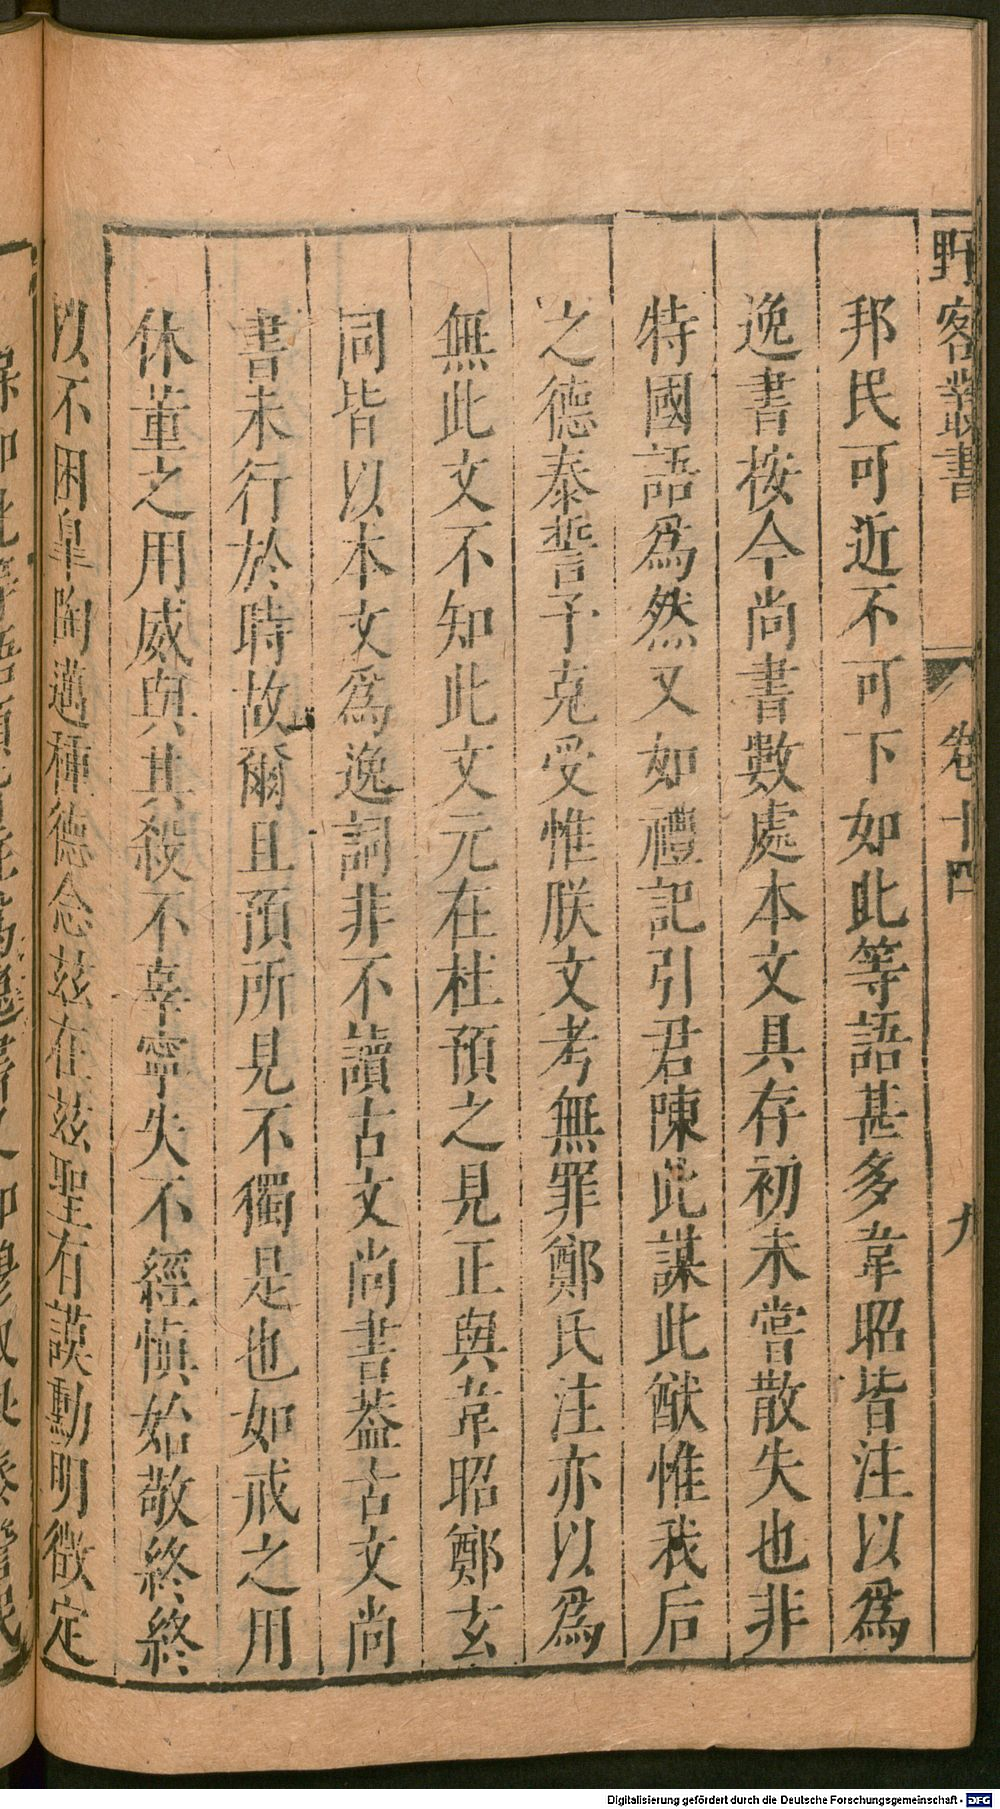 野客叢書 卷十四 九
邦民可近不可下如此等語甚多韋昭皆注以爲
逸書按今尚書數處本文具存初未嘗散失也非
特國語爲然又如禮記引君陳此謀此猷惟我后
之德泰誓予克受惟朕文考無罪鄭氏注亦以爲
無此文不知此文元在杜預之見正與韋昭鄭玄
同皆以本文爲逸詞非不讀古文尚書葢古文尚
書未行於時故爾且預所見不獨是也如戒之用
休董之用威與其殺不辜寧失不經愼始敬終終
以不困皐陶邁種德念茲在茲聖有謨勳明徵定
Digitalisierung gefördert durch die Deutsche Forschungsgemeinschaft - DFG